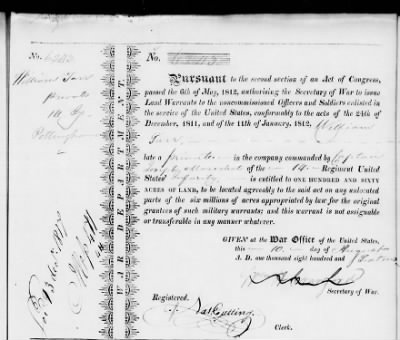 No.
William Tarr
private
14 Reg
WAR DEPARTMENT.
No.
Pursuant to the second section of an Act of Congress,
passed the 6th of May, 1812, authorising the Secretary of War to issue
Land Warrants to the noncommissioned Officers and Soldiers enlisted in
the service of the United States, conformably to the acts of the 24th of
December, 1811, and of the 11th of January, 1812, William
Tarr
late a private in the company commanded by Captain
Joseph Marshal of the 14 Regiment United
States' Infantry
is entitled to ONE HUNDRED AND SIXTY
ACRES OF LAND, to be located agreeably to the said act on any unlocated
parts of the six millions of acres appropriated by law for the original
grantees of such military warrants; and this warrant is not assignable
or transferable in any manner whatever.
GIVEN at the War Office of the United States,
this 10 day of August
A. D. one thousand eight hundred and
Secretary of War.
Registered.
Clerk.